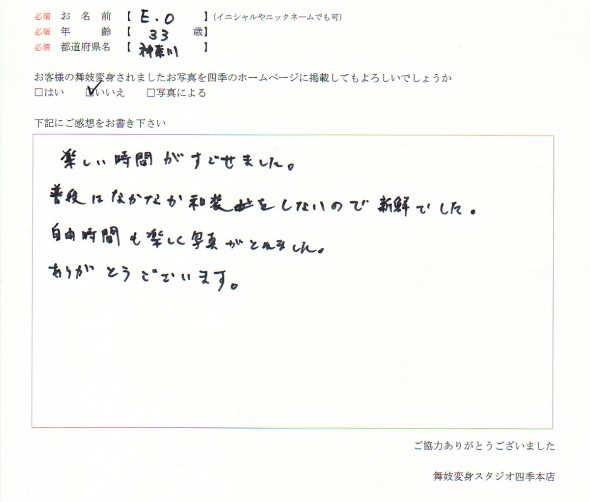 必須 お 名 前 【 E.O 】(イニシャルやニックネームでも可)
必須 年 齢 【 33 歳】
必須 都道府県名 【 神奈川 】
お客様の舞妓変身されましたお写真を四季のホームページに掲載してもよろしいでしょうか
□はい ☑いいえ □写真による
下記にご感想をお書き下さい
楽しい時間がすごせました。
普段はなかなか和装をしないので新鮮でした。
自由時間も楽しく写真がとれました。
ありがとうございます。
ご協力ありがとうございました
舞妓変身スタジオ四季本店